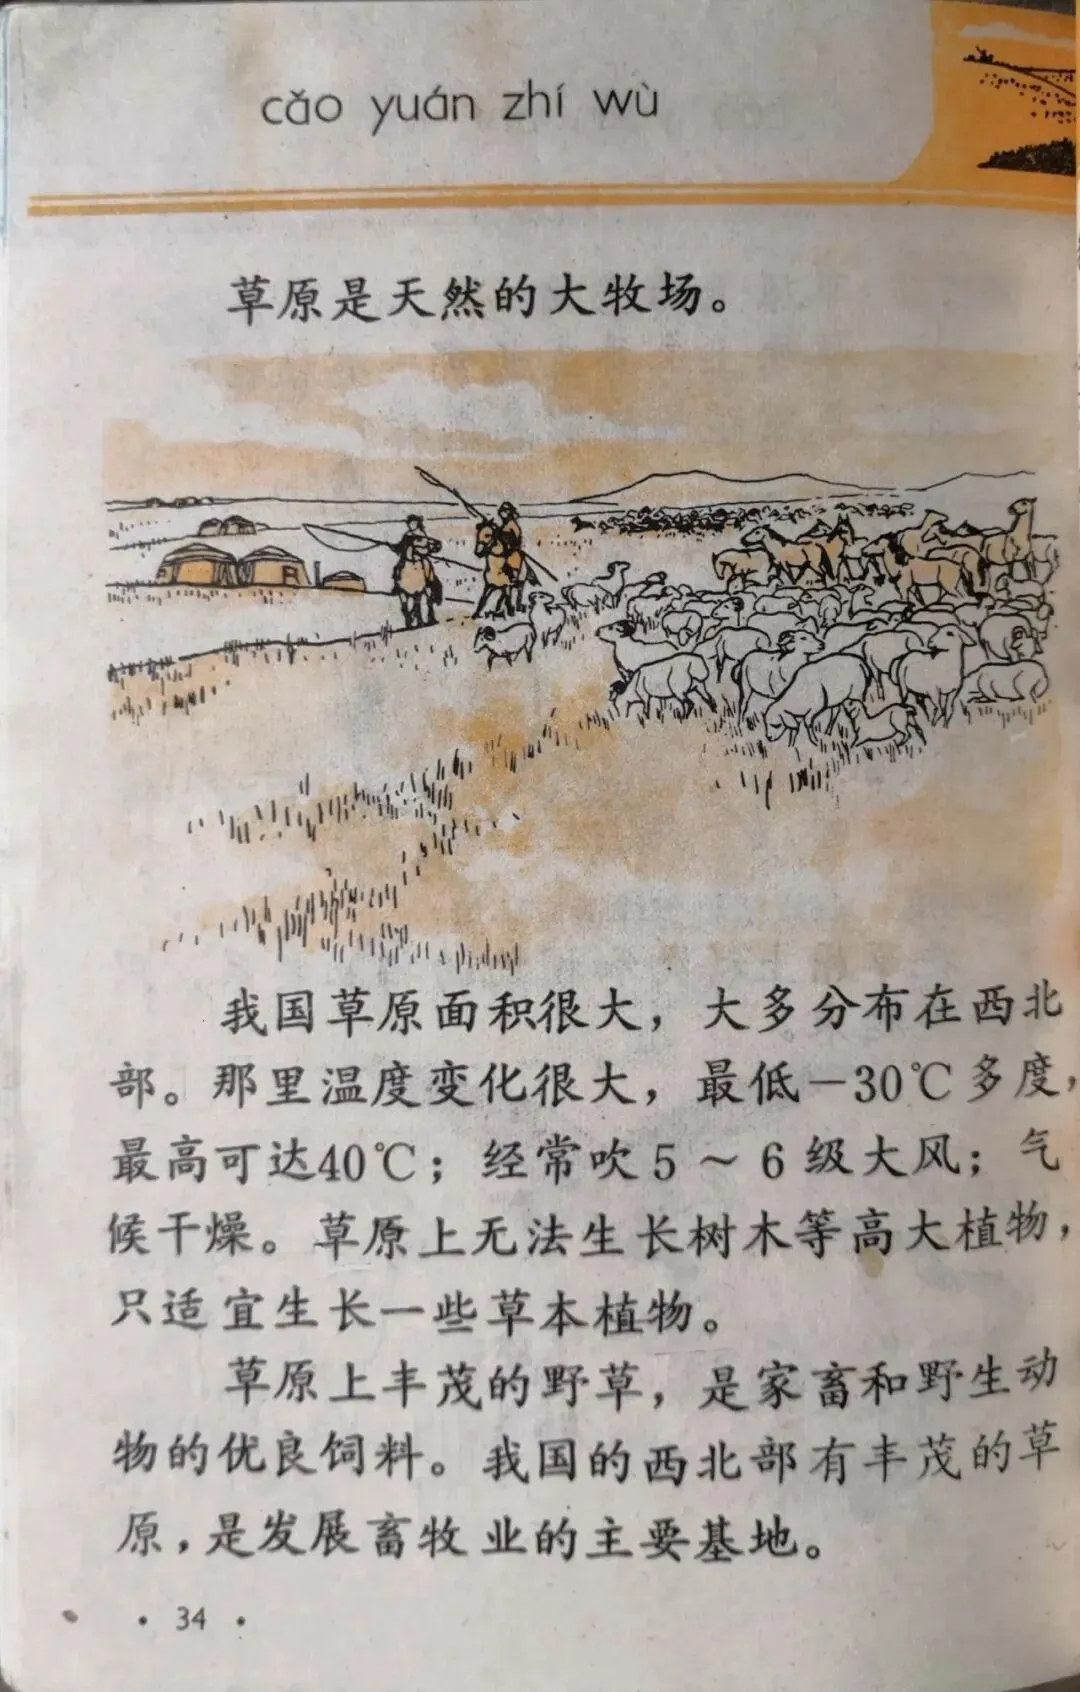 cǎo yuán zhí wù
草原是天然的大牧场。
我国草原面积很大，大多分布在西北
部。那里温度变化很大，最低－30℃多度，
最高可达40℃；经常吹5～6级大风；气
候干燥。草原上无法生长树木等高大植物，
只适宜生长一些草本植物。
草原上丰茂的野草，是家畜和野生动
物的优良饲料。我国的西北部有丰茂的草
原，是发展畜牧业的主要基地。
·34·